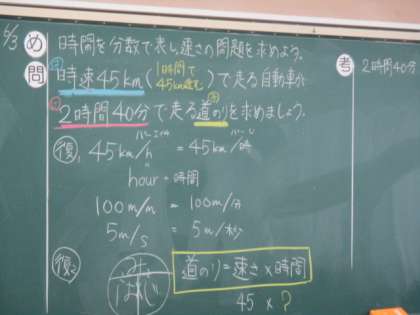 6/3
め 時間を分数で表し、速さの問題を求めよう。
問 時速45km(1時間で45km進む)で走る自動車が
2時間40分で走る道のりを求めましょう。
復1 45km/h = 45km/時
hour = 時間
100m/m = 100m/分
5m/s = 5m/秒
復2 み は じ
道のり = 速さ × 時間
45 × ?
考 2時間40分